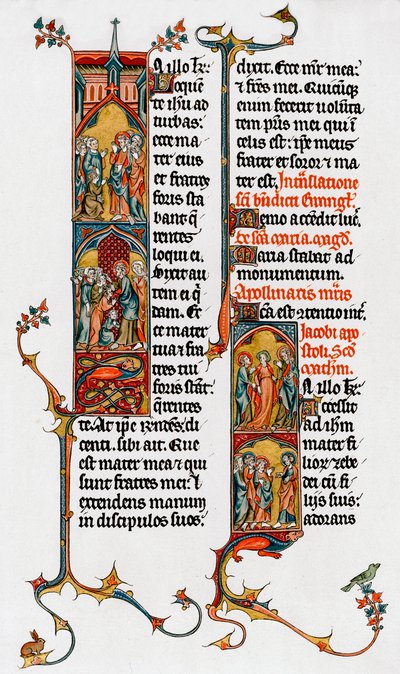 In illo t̄:
Loquen
te ihu ad
turbas:
ecce ma
ter eius
et fratres
foris sta
bant q̄
rentes
loqui ei.
Dixit au
tem ei q̄
dam. Ec
ce mater
tua et fra
tres tui
foris stant
querentes
te. At ipe rn̄dens di
centi sibi ait. Que
est mater mea et qui
sunt fratres mei. Et
extendens manum
in discipulos suos:
dixit. Ecce mr̄ mea
et fr̄es mei. Quicūqꝫ
enim fecerit volūta
tem pr̄is mei qui ī
celis est: ipe meus
frater et soror et ma
ter est. In trāslatione
sc̄i bn̄dicti Ewangl̄.
Nemo accendit luc̄.
De sc̄a maria magd̄.
Maria stabat ad
monumentum.
Apollinaris mr̄is
Fca est contentio int̄.
Jacobi apo
stoli. Scd̄
math̄m.
In illo t̄:
Accessit
ad ihm
mater fi
lior zebe
dei cū fi
lijs suis:
adorans